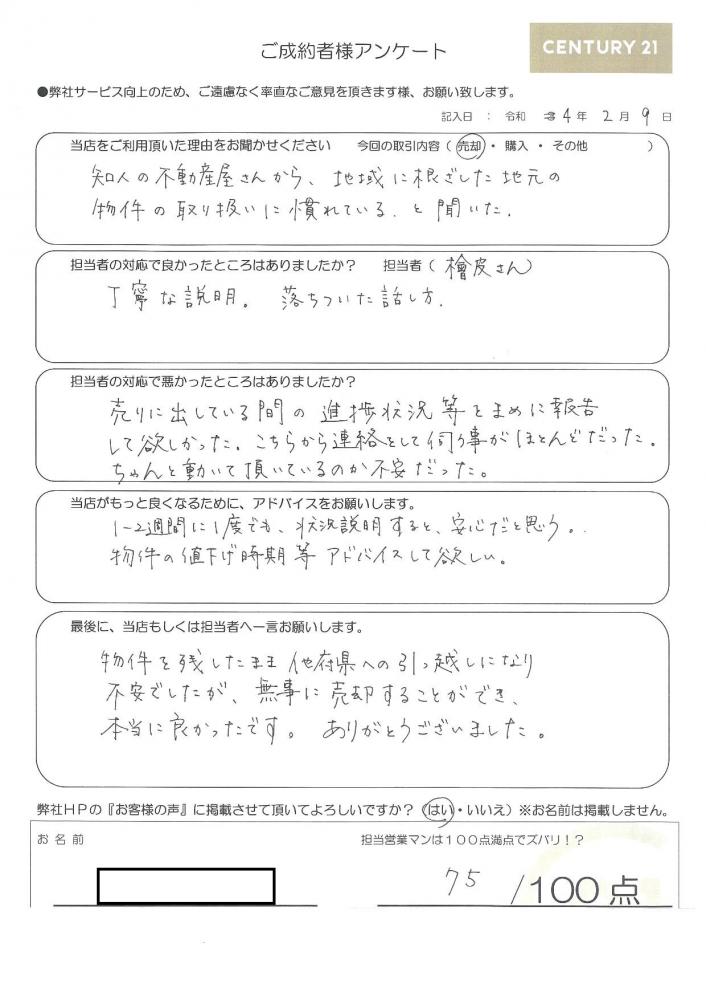 CENTURY 21
ご成約者様アンケート
●弊社サービス向上のため、ご遠慮なく率直なご意見を頂きます様、お願い致します。
記入日 : 令和 4年 2月 9日
当店をご利用頂いた理由をお聞かせください 今回の取引内容(売却・購入・その他 )
知人の不動産屋さんから、地域に根ざした地元の
物件の取り扱いに慣れている、と聞いた。
担当者の対応で良かったところはありましたか? 担当者(檜皮さん)
丁寧な説明。 落ちついた話し方。
担当者の対応で悪かったところはありましたか?
売りに出している間の進捗状況等をまめに報告
して欲しかった。こちらから連絡をして伺う事がほとんどだった。
ちゃんと動いて頂いているのか不安だった。
当店がもっと良くなるために、アドバイスをお願いします。
1~2週間に1度でも、状況説明すると、安心だと思う。
物件の値下げ時期等アドバイスして欲しい。
最後に、当店もしくは担当者へ一言お願いします。
物件を残したまま他府県への引っ越しになり
不安でしたが、無事に売却することができ、
本当に良かったです。ありがとうございました。
弊社HPの『お客様の声』に掲載させて頂いてよろしいですか?(はい・いいえ)※お名前は掲載しません。
お名前
担当営業マンは100点満点でズバリ!?
75 /100点